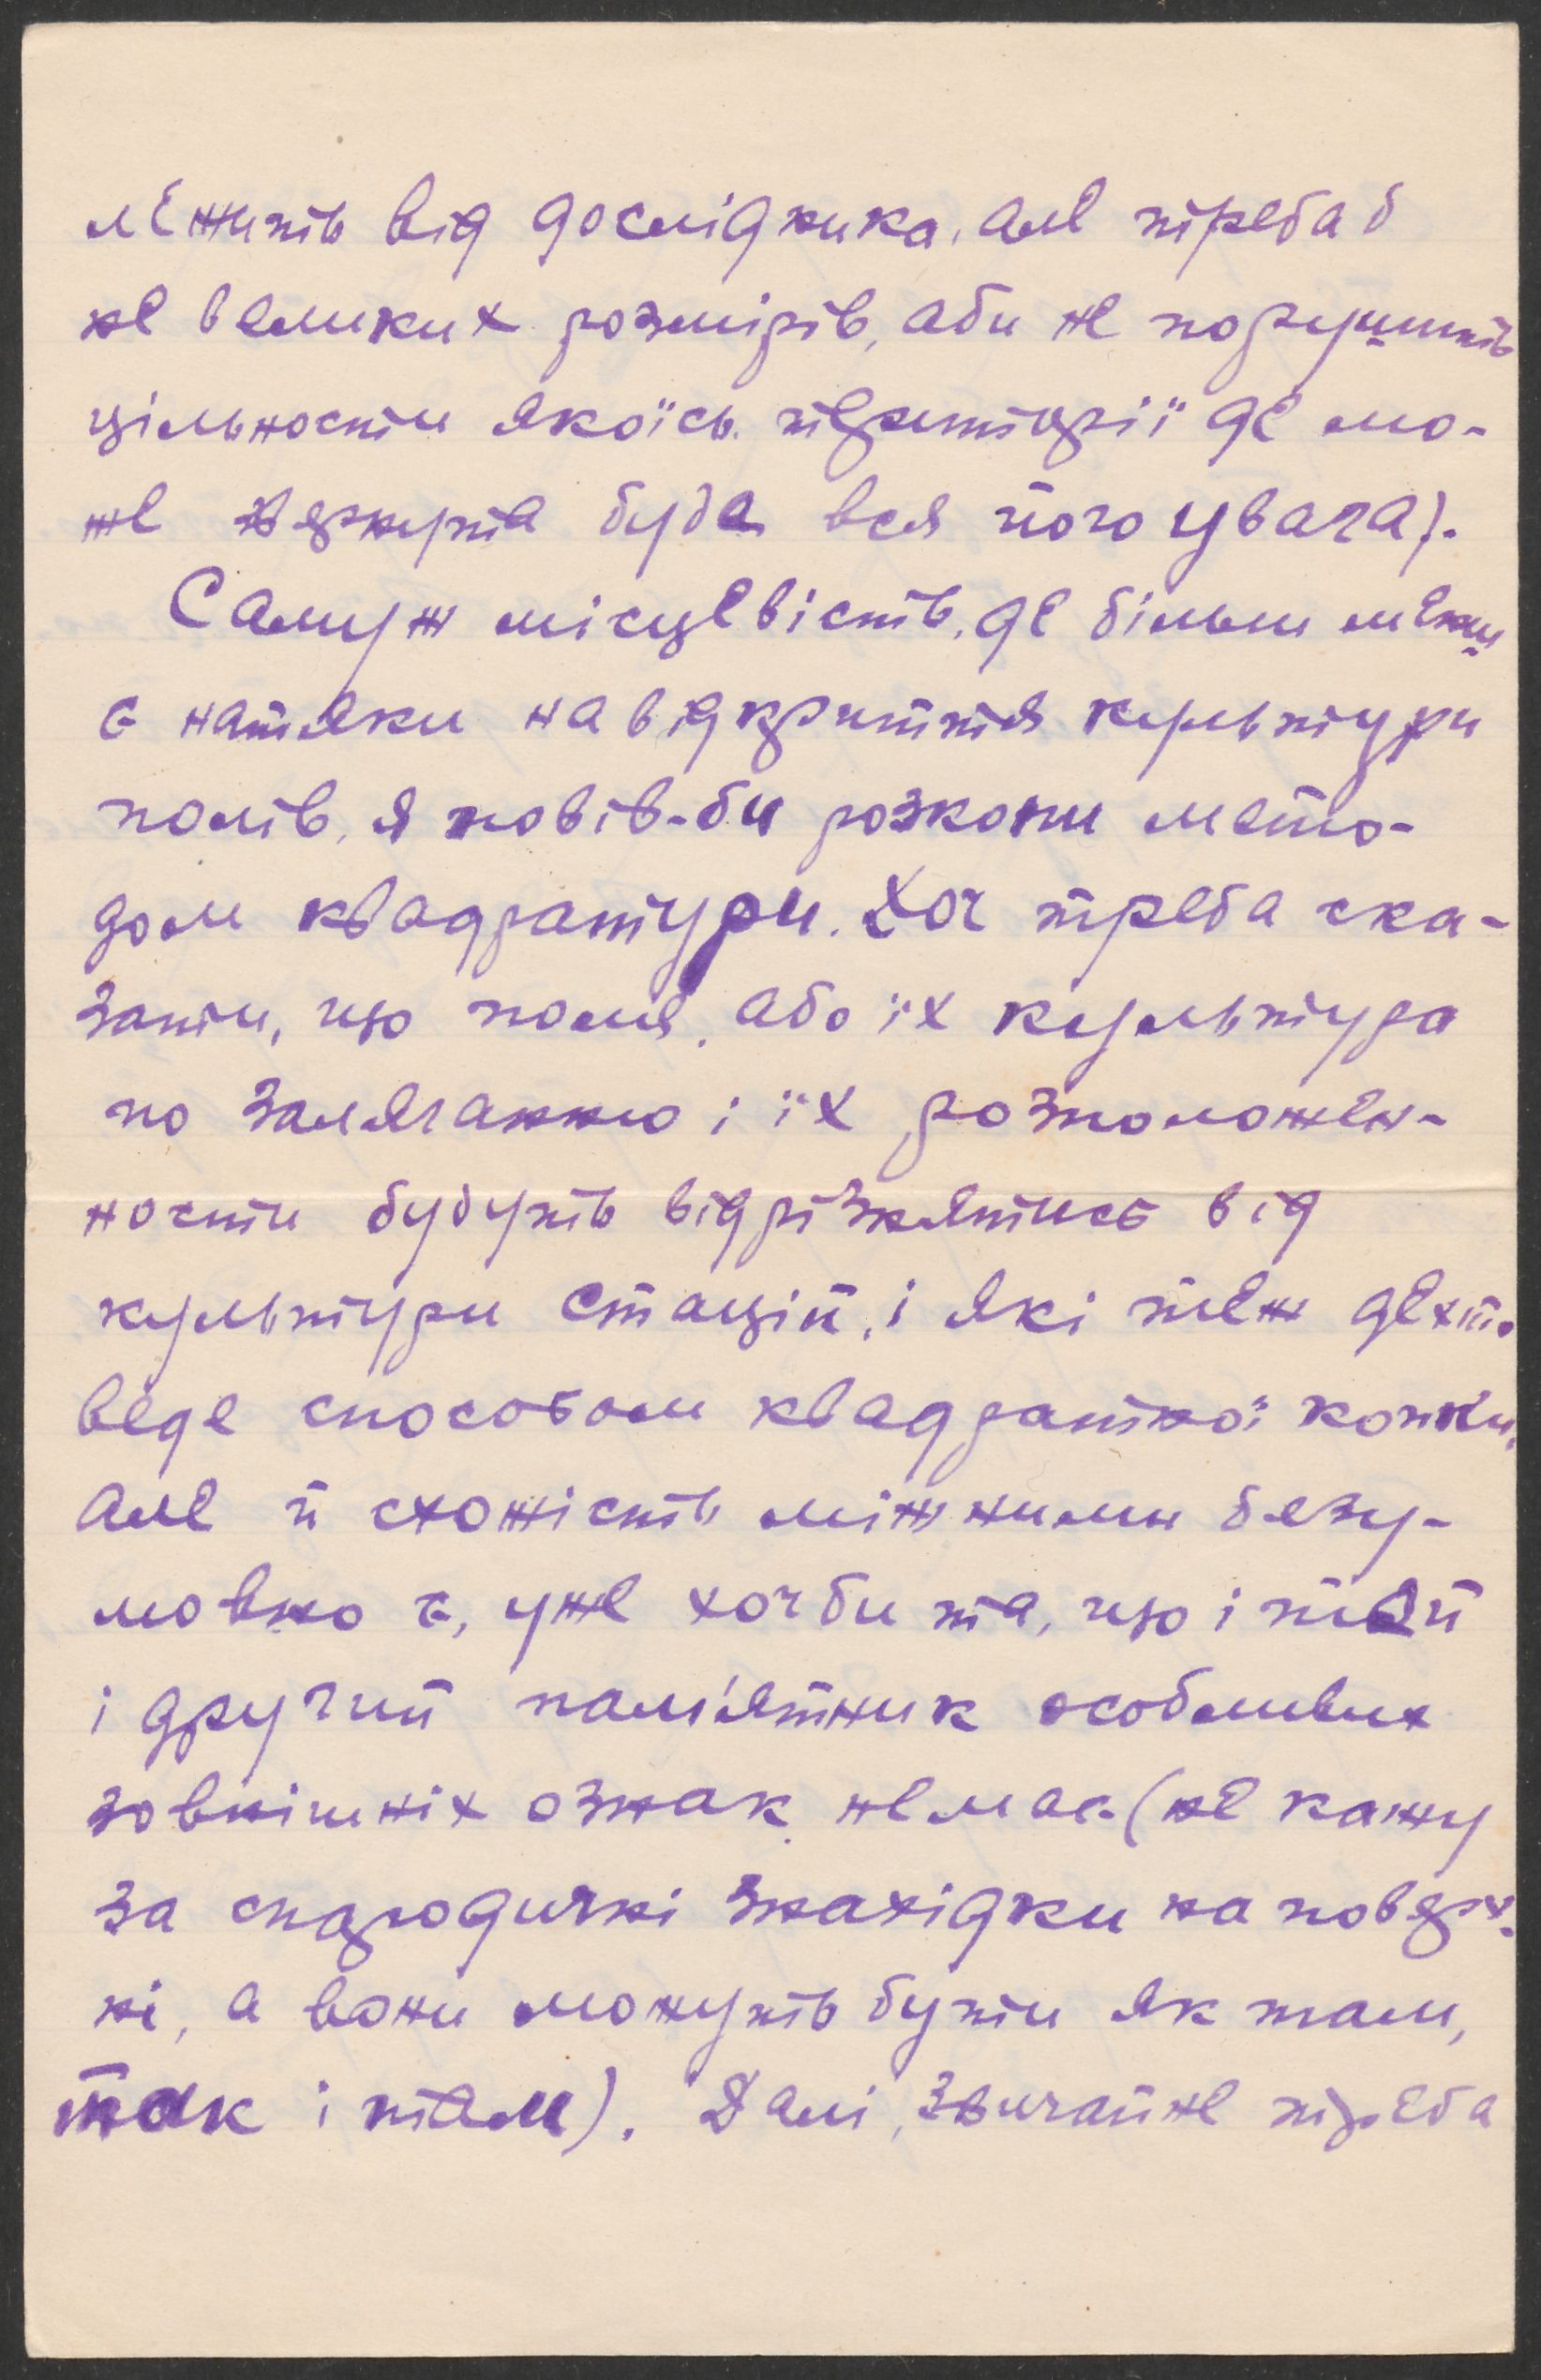 лежить від дослідника, але треба б
не великих розмірів, аби не порушить
цільности якоїсь територіï де мо-
же звернута буда вся його увага).
Саму ж місцевість, де більш менш
є натяки на відкриття культури
полів, я повів-би розкопи мето-
дом квадратури. Хоч треба ска-
зати, що поля, або їх культура
по заляганню і їх розположен-
ности будуть відрізнятись від
культури стацій, і які теж дехто
веде способом квадратноï копки,
але й схожість між ними безу-
мовно є, уже хоч би та, що і той
і другий пам'ятник особливих
зовнішніх ознак не має (не кажу
за спародичні знахідки на поверх-
ні, а вони можуть бути як там,
так і там). Далі, звичайне треба